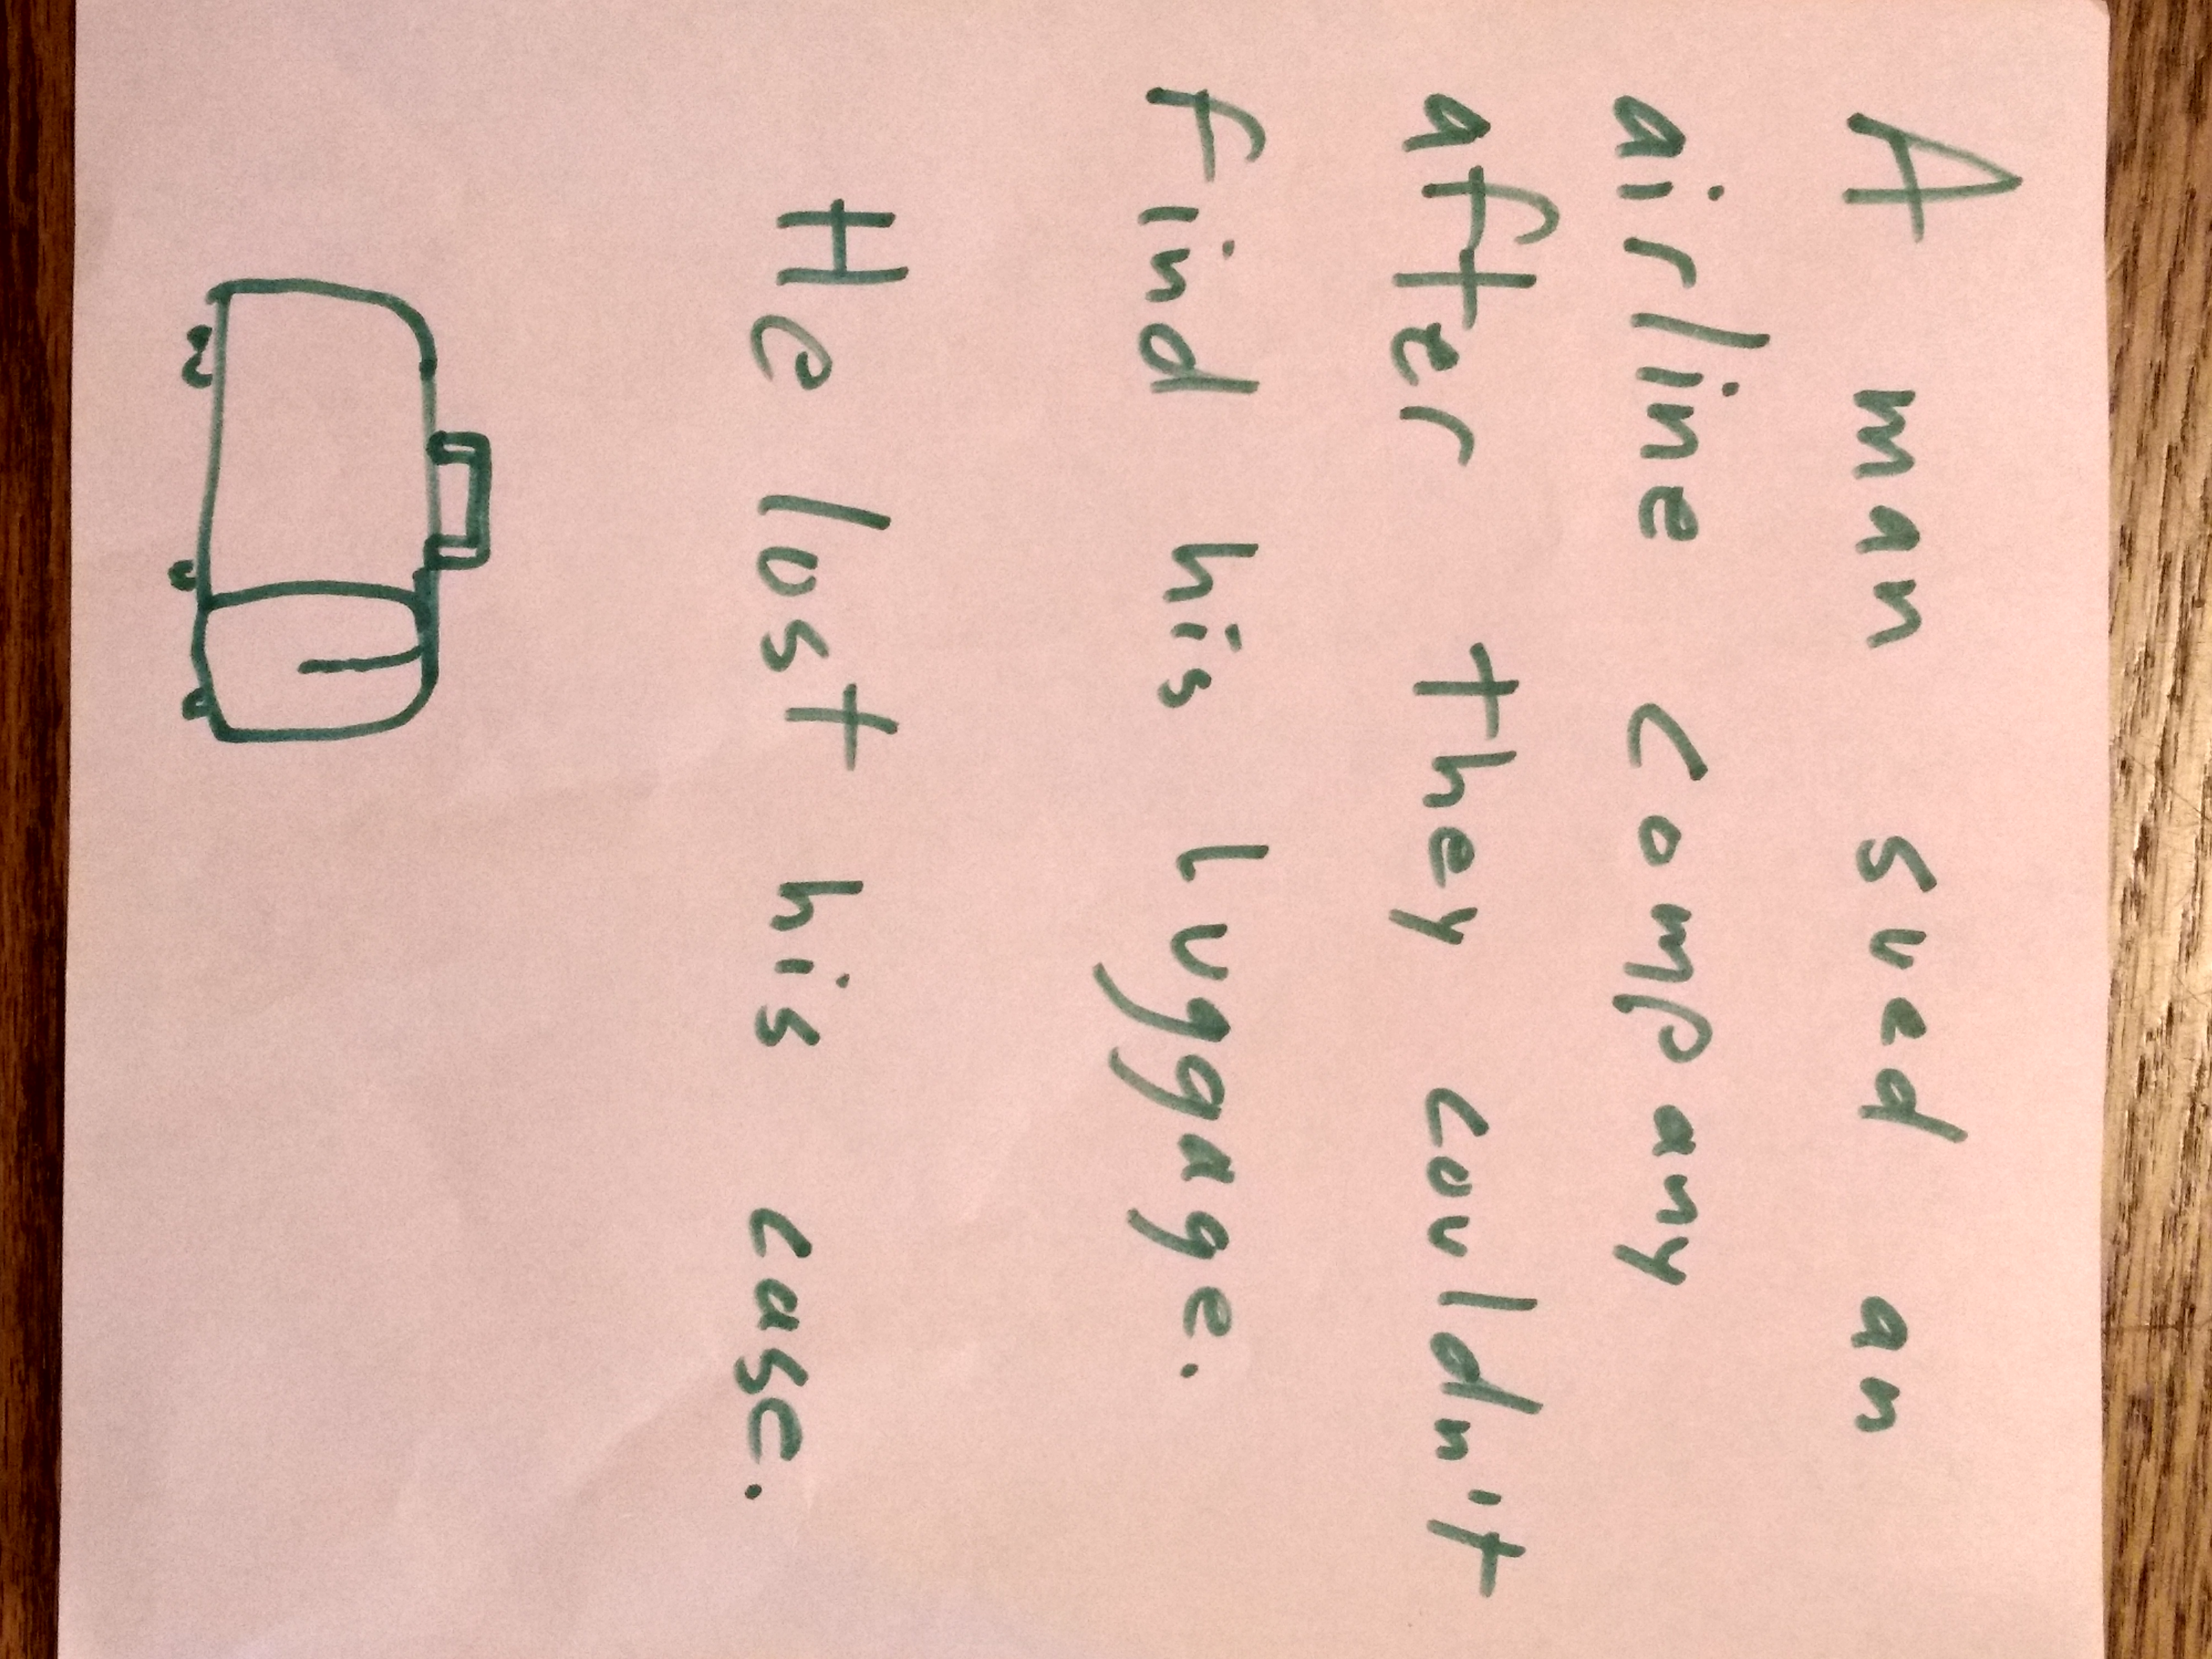 A man sued an
airline company
after they couldn't
find his luggage.
He lost his case.